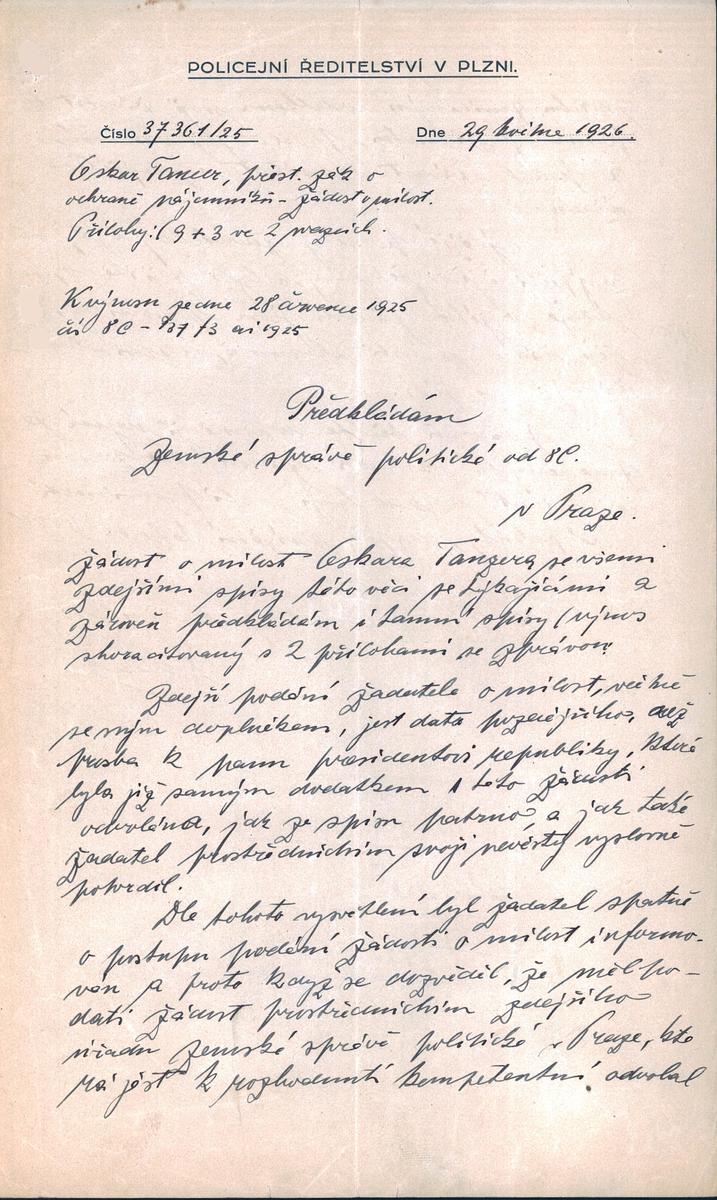 POLICEJNÍ ŘEDITELSTVÍ V PLZNI.
Číslo 37361/25 Dne 29 května 1926.
Oskar Tanzer, přest. zák o
ochraně nájemníků – žádost o milost.
Přílohy: (9 + 3 ve 2 svazcích.
K výnosu ze dne 28 července 1925
čís 8C – 137/3 ai 1925
Předkládám
Zemské správě politické od 8C.
v Praze.
žádost o milost Oskara Tanzera se všemi
zdejšími spisy této věci se týkajícími a
zároveň předkládám i tamní spisy (výnos
shora citovaný s 2 přílohami se zprávou:
Zdejší podání žadatele o milost, věčně
se svým doplňkem, jest data pozdějšího, než
prosba k panu presidentovi republiky, která
byla již samým dodatkem k této žádosti
odvolána, jak ze spisu patrno a jak také
žadatel prostřednictvím svojí nevěsty výslovně
potvrdil.
Dle tohoto vysvětlení byl žadatel špatně
o postupu podání žádosti o milost informo-
ván a proto když se dozvěděl, že měl po-
dati žádost prostřednictvím zdejšího
úřadu zemské správě politické v Praze, kte
rá jest k rozhodnutí kompetentní odvolal